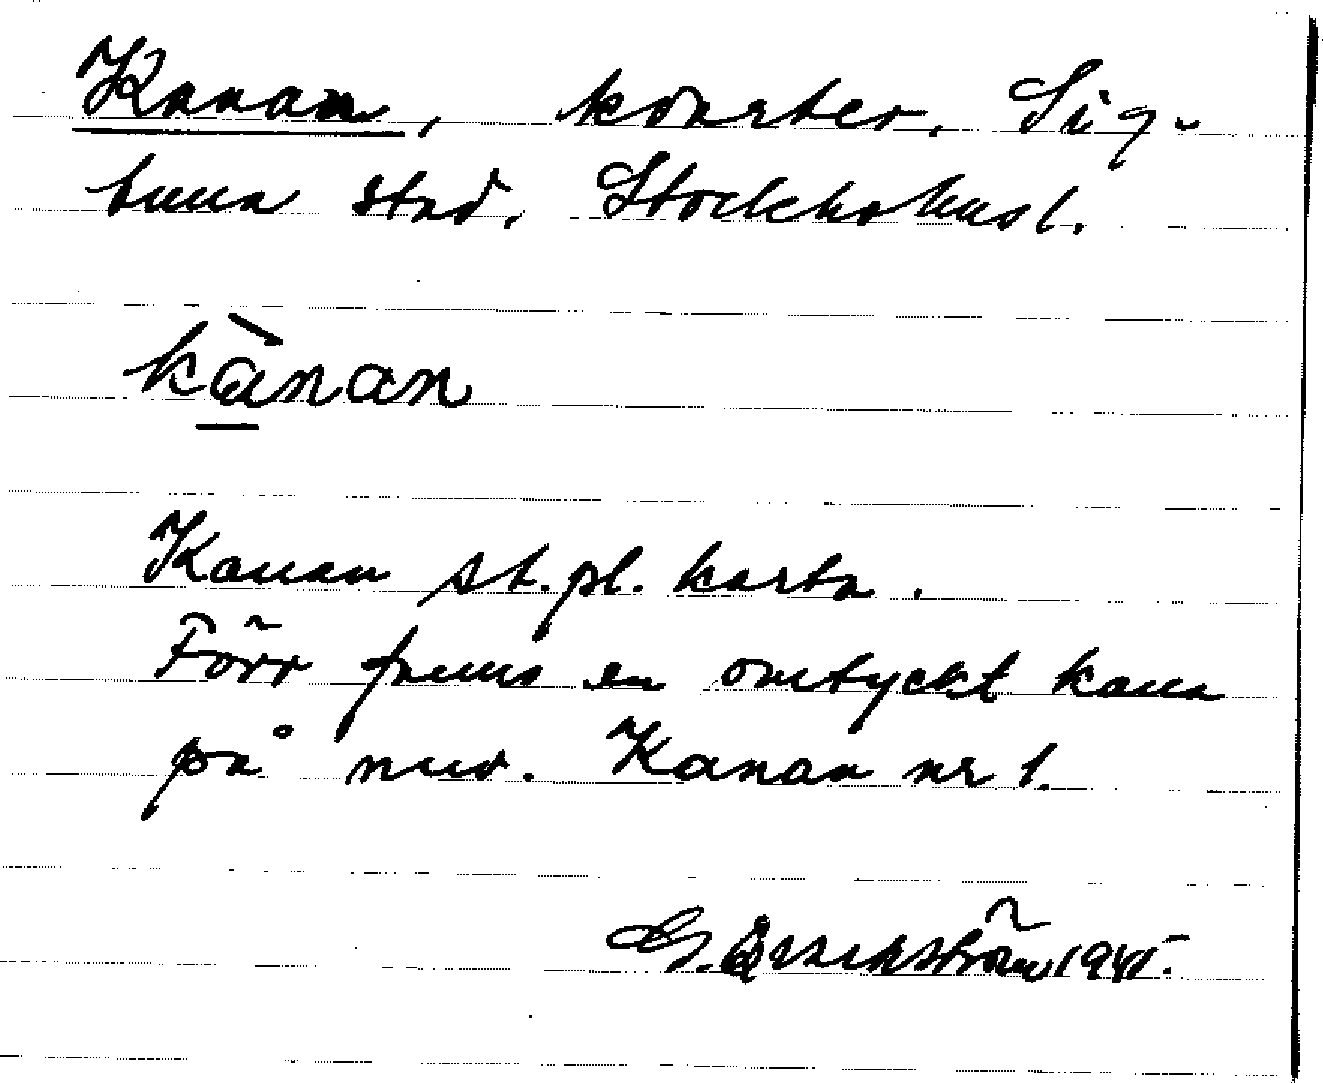 Kanan, kvarter, Sig-
tuna stad, Stockholmsl.
kànan
Kanan st.pl. karta.
Förr fanns en omtyckt kana
på nuv. Kanan nr 1.
G. 1945.